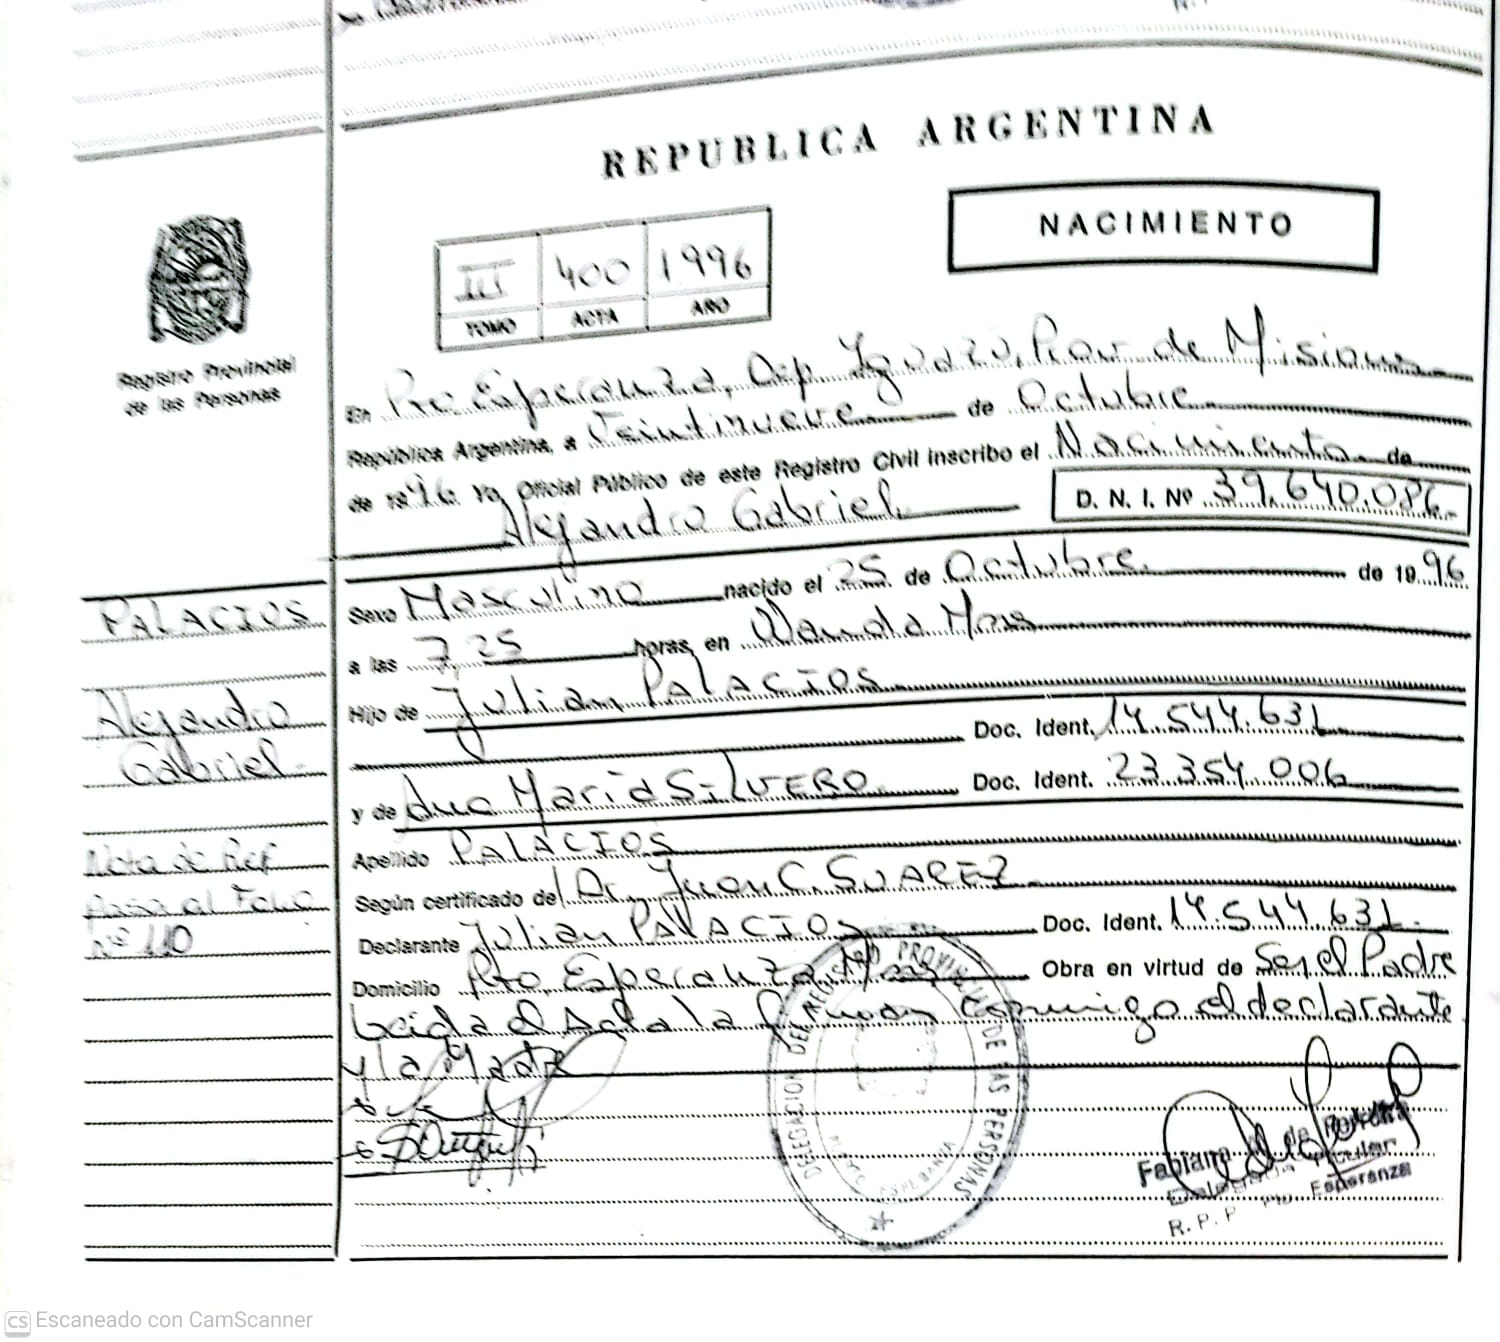 REPUBLICA ARGENTINA
NACIMIENTO
III 400 1996
TOMO ACTA AÑO
Registro Provincial
de las Personas
En Pto Esperanza, Dep. Iguazú, Prov. de Misiones
República Argentina, a Veintinueve de Octubre
de 1996. Yo, Oficial Público de este Registro Civil inscribo el Nacimiento de
Alejandro Gabriel D. N. I. Nº 39.640.086
PALACIOS
Alejandro
Gabriel
Nota de Ref
Pasa al Folio
Nº 110
Sexo Masculino nacido el 25 de Octubre de 1996
a las 7,25 horas, en Wanda Mnes
Hijo de Julian PALACIOS
Doc. Ident. 14.544.631
y de Ana Maria SILVERO Doc. Ident. 23.354.006
Apellido PALACIOS
Según certificado del Dr. Juan C. SUAREZ
Declarante Julian PALACIOS Doc. Ident. 14.544.631
Domicilio Pto. Esperanza, Mnes Obra en virtud de Ser el Padre
Leida el Acta la firman conmigo el declarante
y la Madre
DELEGACION DEL REGISTRO PROVINCIAL DE LAS PERSONAS
PUERTO ESPERANZA
Fabiana de
Delegada Titular
R. P. P Pto. Esperanza
CS Escaneado con CamScanner